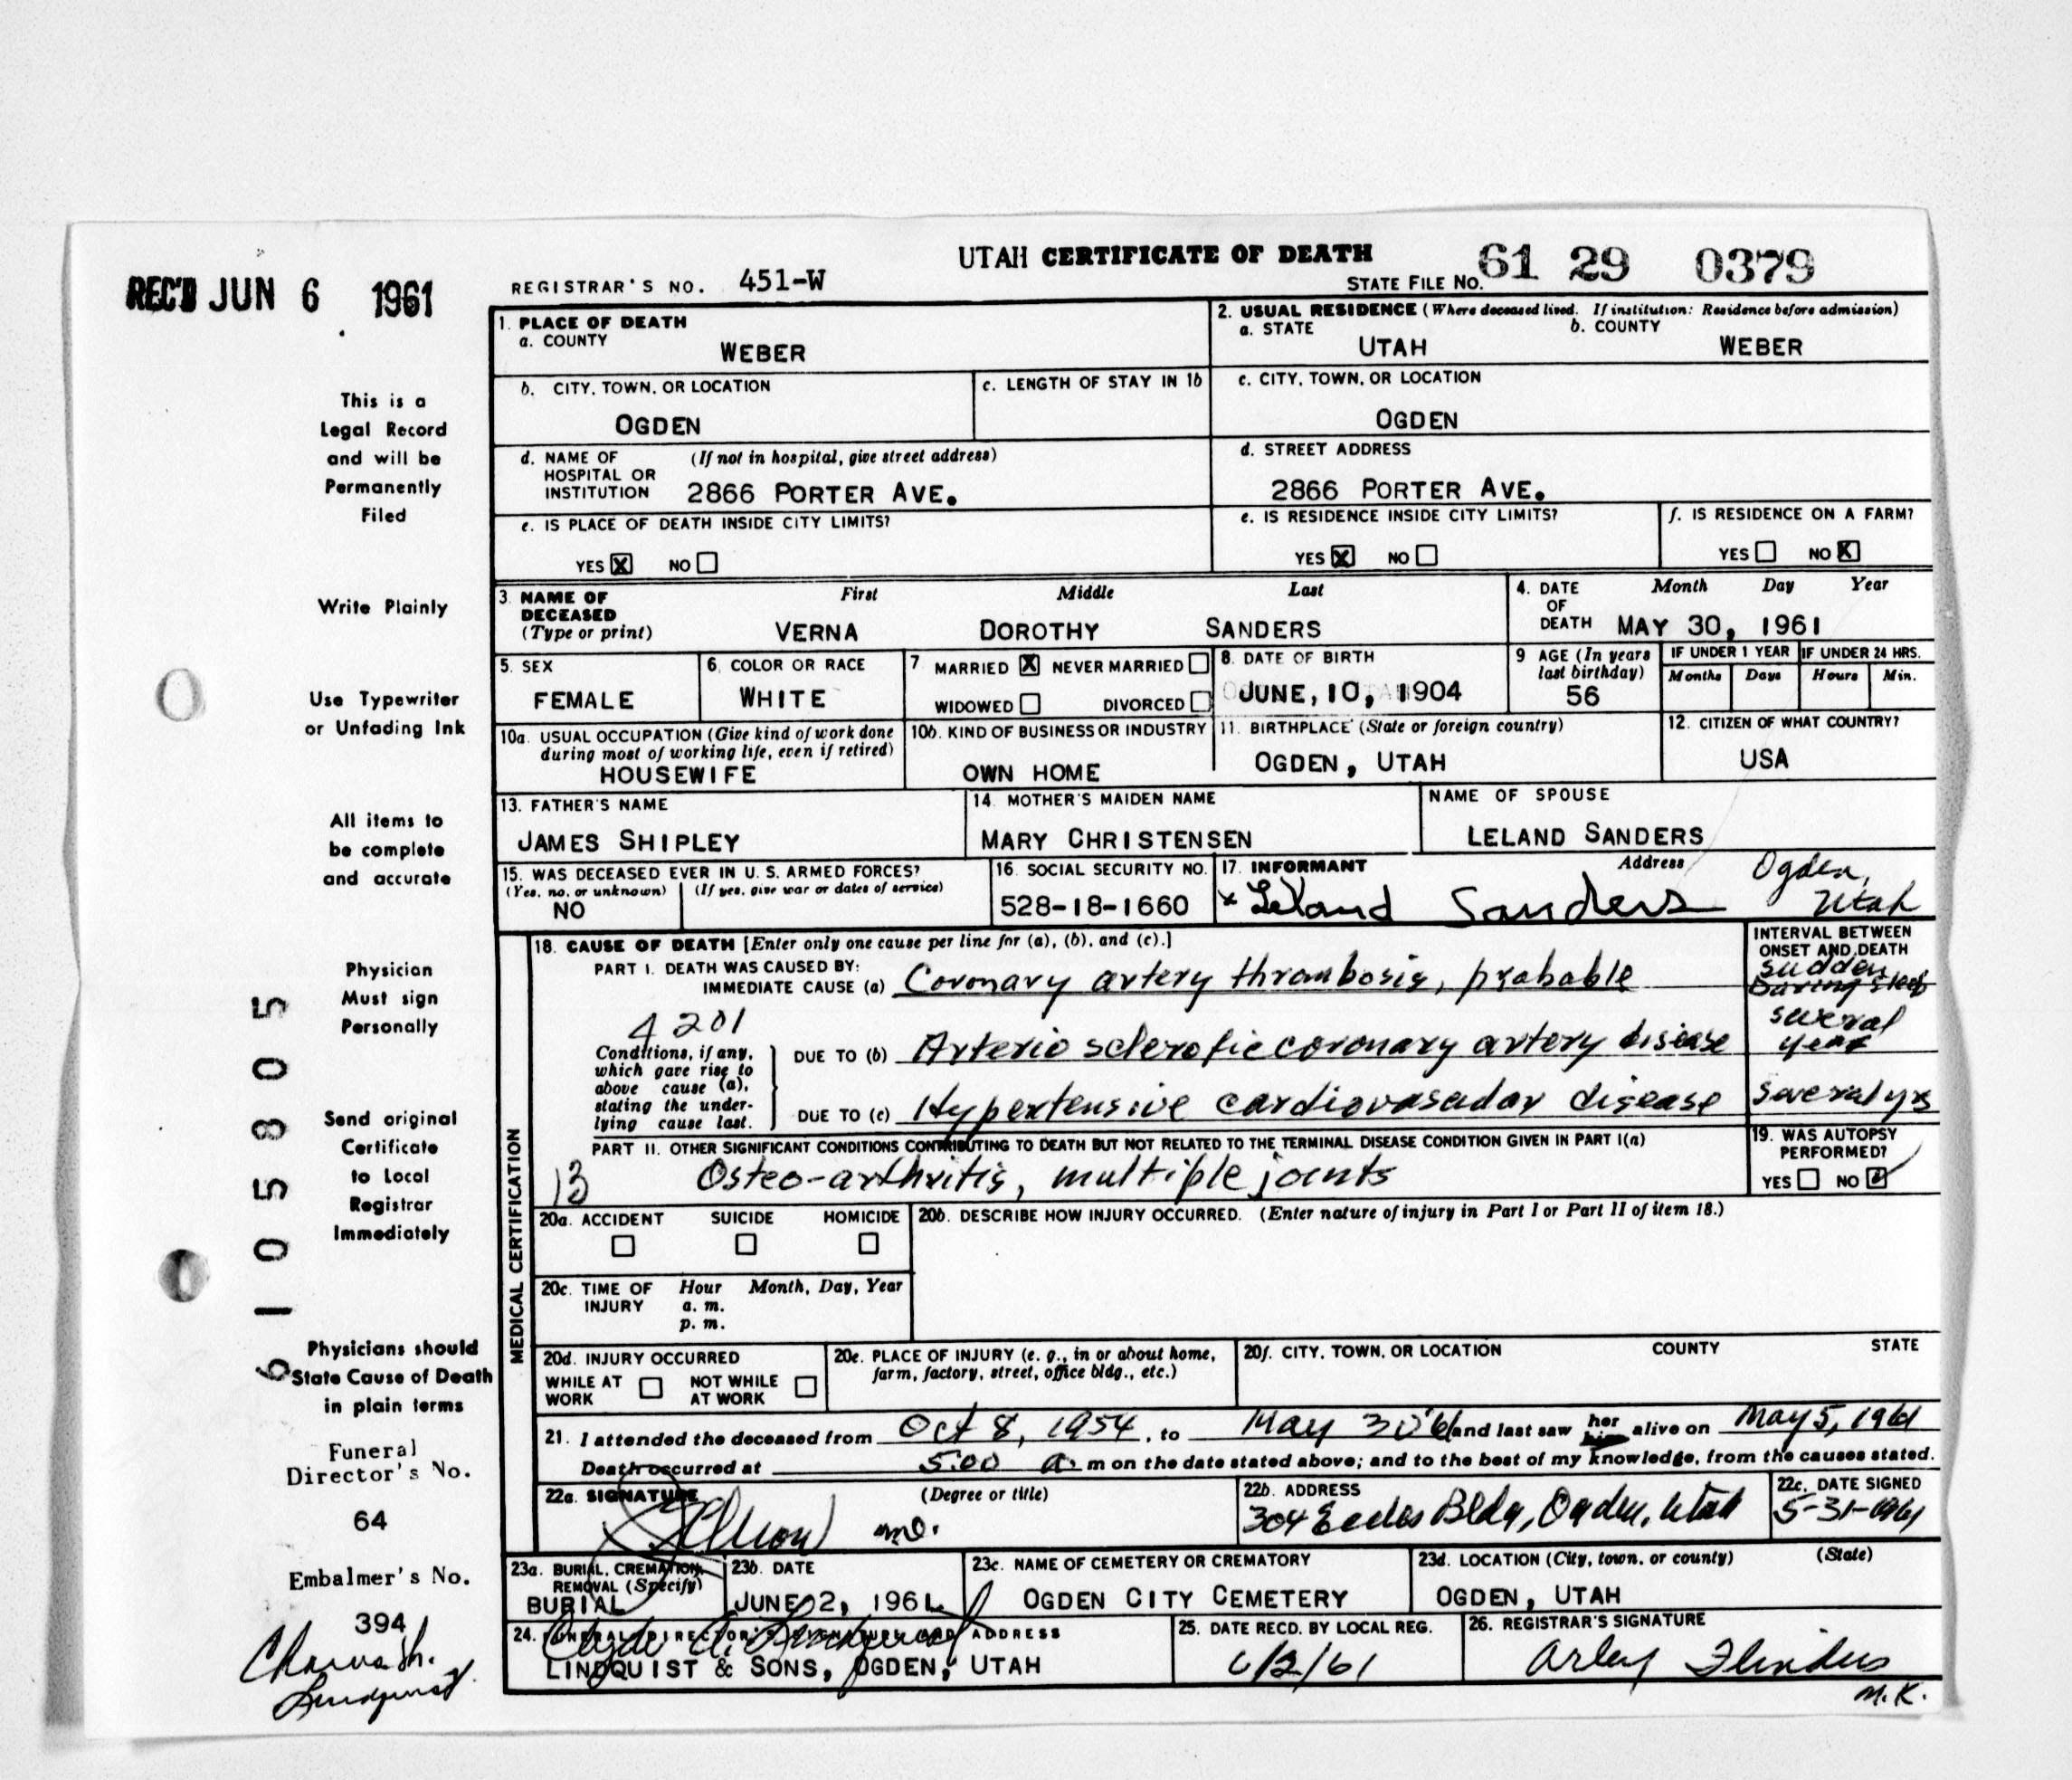 UTAH CERTIFICATE OF DEATH
REC'D JUN 6 1961
REGISTRAR'S NO. 451-W
STATE FILE NO. 61 29 0379
1. PLACE OF DEATH
a. COUNTY
WEBER
2. USUAL RESIDENCE (Where deceased lived. If institution: Residence before admission)
a. STATE b. COUNTY
UTAH WEBER
b. CITY, TOWN, OR LOCATION
OGDEN
c. LENGTH OF STAY IN 1b
c. CITY, TOWN, OR LOCATION
OGDEN
d. NAME OF HOSPITAL OR INSTITUTION (If not in hospital, give street address)
2866 PORTER AVE.
d. STREET ADDRESS
2866 PORTER AVE.
e. IS PLACE OF DEATH INSIDE CITY LIMITS?
YES X NO
e. IS RESIDENCE INSIDE CITY LIMITS?
YES X NO
f. IS RESIDENCE ON A FARM?
YES NO X
3. NAME OF DECEASED (Type or print)
First Middle Last
VERNA DOROTHY SANDERS
4. DATE OF DEATH Month Day Year
MAY 30, 1961
5. SEX
FEMALE
6. COLOR OR RACE
WHITE
7. MARRIED X NEVER MARRIED
WIDOWED DIVORCED
8. DATE OF BIRTH
JUNE, 10, 1904
9 AGE (In years last birthday)
56
IF UNDER 1 YEAR
Months Days
IF UNDER 24 HRS.
Hours Min.
10a. USUAL OCCUPATION (Give kind of work done during most of working life, even if retired)
HOUSEWIFE
10b. KIND OF BUSINESS OR INDUSTRY
OWN HOME
11. BIRTHPLACE (State or foreign country)
OGDEN, UTAH
12. CITIZEN OF WHAT COUNTRY?
USA
13. FATHER'S NAME
JAMES SHIPLEY
14. MOTHER'S MAIDEN NAME
MARY CHRISTENSEN
NAME OF SPOUSE
LELAND SANDERS
15. WAS DECEASED EVER IN U. S. ARMED FORCES?
(Yes, no, or unknown) (If yes, give war or dates of service)
NO
16. SOCIAL SECURITY NO.
528-18-1660
17. INFORMANT Address
x Leland Sanders Ogden, Utah
MEDICAL CERTIFICATION
18. CAUSE OF DEATH [Enter only one cause per line for (a), (b), and (c).]
INTERVAL BETWEEN ONSET AND DEATH
PART I. DEATH WAS CAUSED BY:
IMMEDIATE CAUSE (a) Coronary artery thrombosis, probable
sudden
During sleep
4201
Conditions, if any, which gave rise to above cause (a), stating the underlying cause last.
DUE TO (b) Arterio sclerotic coronary artery disease several years
DUE TO (c) Hypertensive cardiovascular disease several yrs
PART II. OTHER SIGNIFICANT CONDITIONS CONTRIBUTING TO DEATH BUT NOT RELATED TO THE TERMINAL DISEASE CONDITION GIVEN IN PART I(a)
Osteo-arthritis, multiple joints
19. WAS AUTOPSY PERFORMED?
YES NO
20a. ACCIDENT SUICIDE HOMICIDE
20b. DESCRIBE HOW INJURY OCCURRED. (Enter nature of injury in Part I or Part II of item 18.)
20c. TIME OF INJURY Hour Month, Day, Year
a. m.
p. m.
20d. INJURY OCCURRED
WHILE AT WORK NOT WHILE AT WORK
20e. PLACE OF INJURY (e. g., in or about home, farm, factory, street, office bldg., etc.)
20f. CITY, TOWN, OR LOCATION COUNTY STATE
21. I attended the deceased from Oct 8, 1954, to May 30 '61 and last saw her him alive on May 5, 1961
Death occurred at 5:00 a. m on the date stated above; and to the best of my knowledge, from the causes stated.
22a. SIGNATURE (Degree or title)
m.D.
22b. ADDRESS
304 Eccles Bldg, Ogden, Utah
22c. DATE SIGNED
5-31-1961
23a. BURIAL, CREMATION, REMOVAL (Specify)
BURIAL
23b. DATE
JUNE 2, 1961
23c. NAME OF CEMETERY OR CREMATORY
OGDEN CITY CEMETERY
23d. LOCATION (City, town, or county) (State)
OGDEN, UTAH
24. FUNERAL DIRECTOR'S SIGNATURE AND ADDRESS
Clyde A. Lindquist
LINDQUIST & SONS, OGDEN, UTAH
25. DATE RECD. BY LOCAL REG.
6/2/61
26. REGISTRAR'S SIGNATURE
Arley Flinders
M.K.
This is a
Legal Record
and will be
Permanently
Filed
Write Plainly
Use Typewriter
or Unfading Ink
All items to
be complete
and accurate
Physician
Must sign
Personally
Send original
Certificate
to Local
Registrar
Immediately
Physicians should
State Cause of Death
in plain terms
Funeral
Director's No.
64
Embalmer's No.
394
Lindquist
61 05805